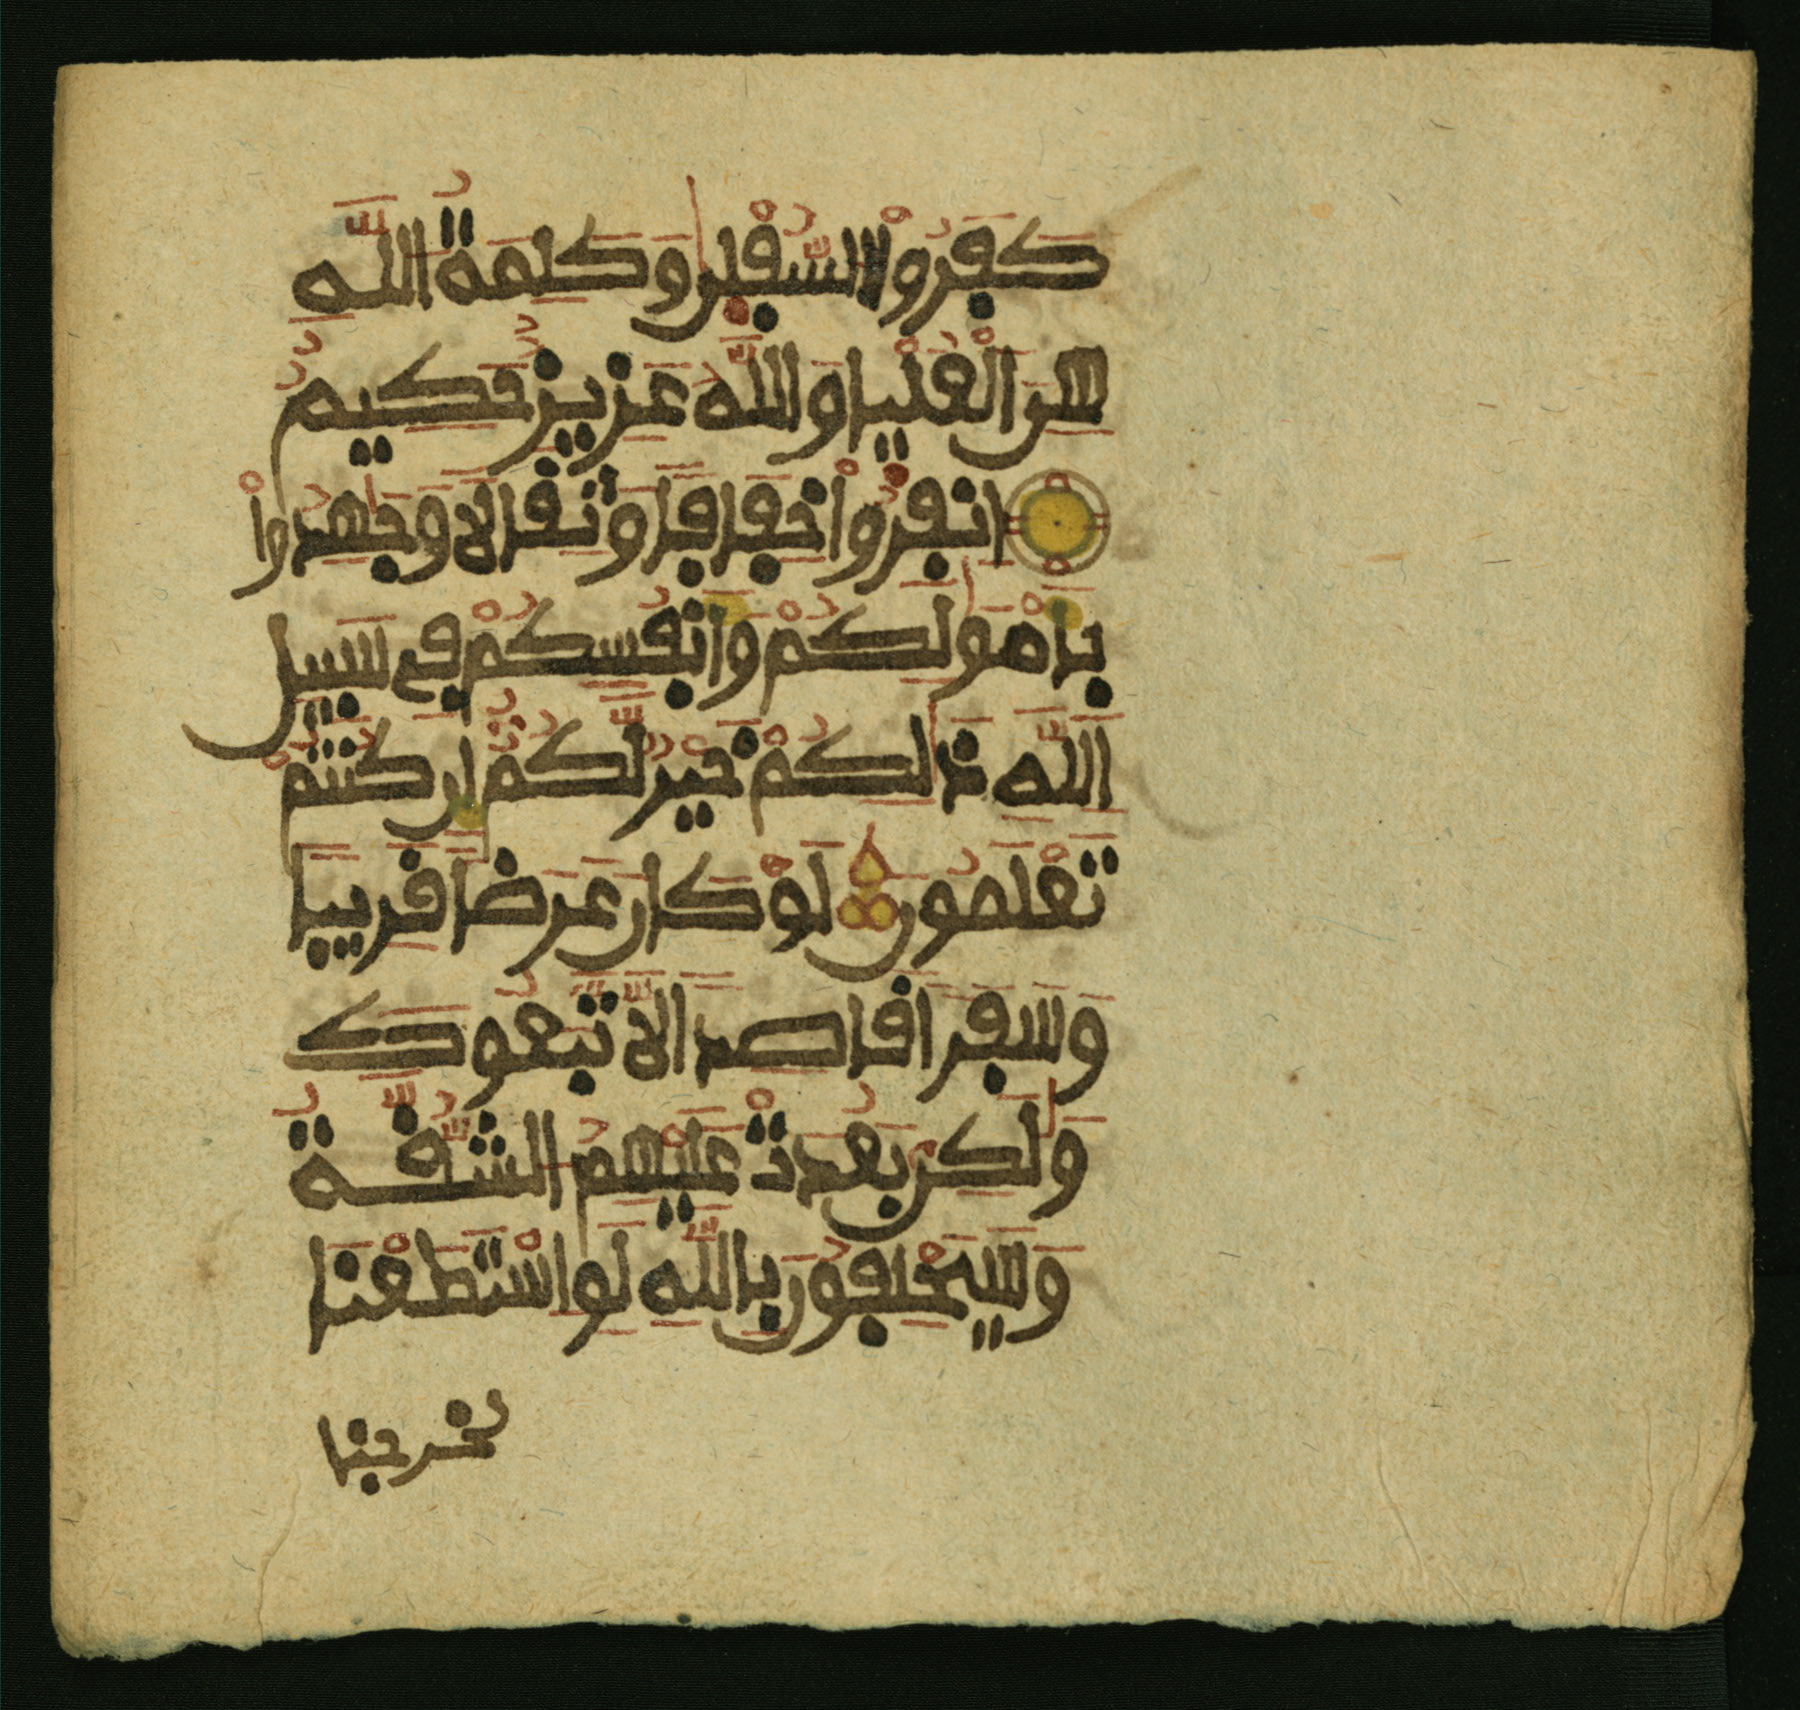 كَفَرُواْ السُّفْلٜىٰ وَكَلِمَةُ اللَّهِ
هِىَ الْعُلْيَا وَاللَّهُ عَزِيزٌ حَكِيمٌ
اِنفِرُواْ خِفَافاً وَثِقَالاً وَجَٰهِدُواْ
بِأَمْوَٰلِكُمْ وَأَنفُسِكُمْ فِى سَبِيلِ
اللَّهِ ذَٰلِكُمْ خَيْرٌ لَّكُمُ إِن كُنتُمْ
تَعْلَمُونَ لَوْ كَانَ عَرَضاً قَرِيباً
وَسَفَراً قَاصِداً لاَّتَّبَعُوكَ
وَلَٰكِن بَعُدَتْ عَلَيْهِمُ الشُّقَّةُ
وَسَيَحْلِفُونَ بِاللَّهِ لَوِ اسْتَطَعْنَا
لخرجنا